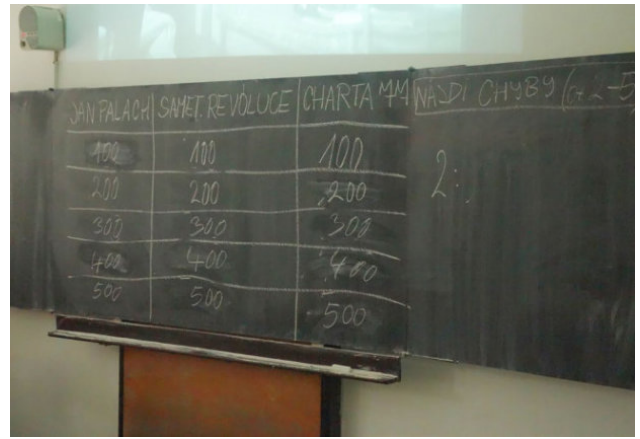 JAN PALACH SAMET. REVOLUCE CHARTA 77
100 100 100
200 200 200
300 300 300
400 400 400
500 500 500
NAJDI CHYBY (
2: